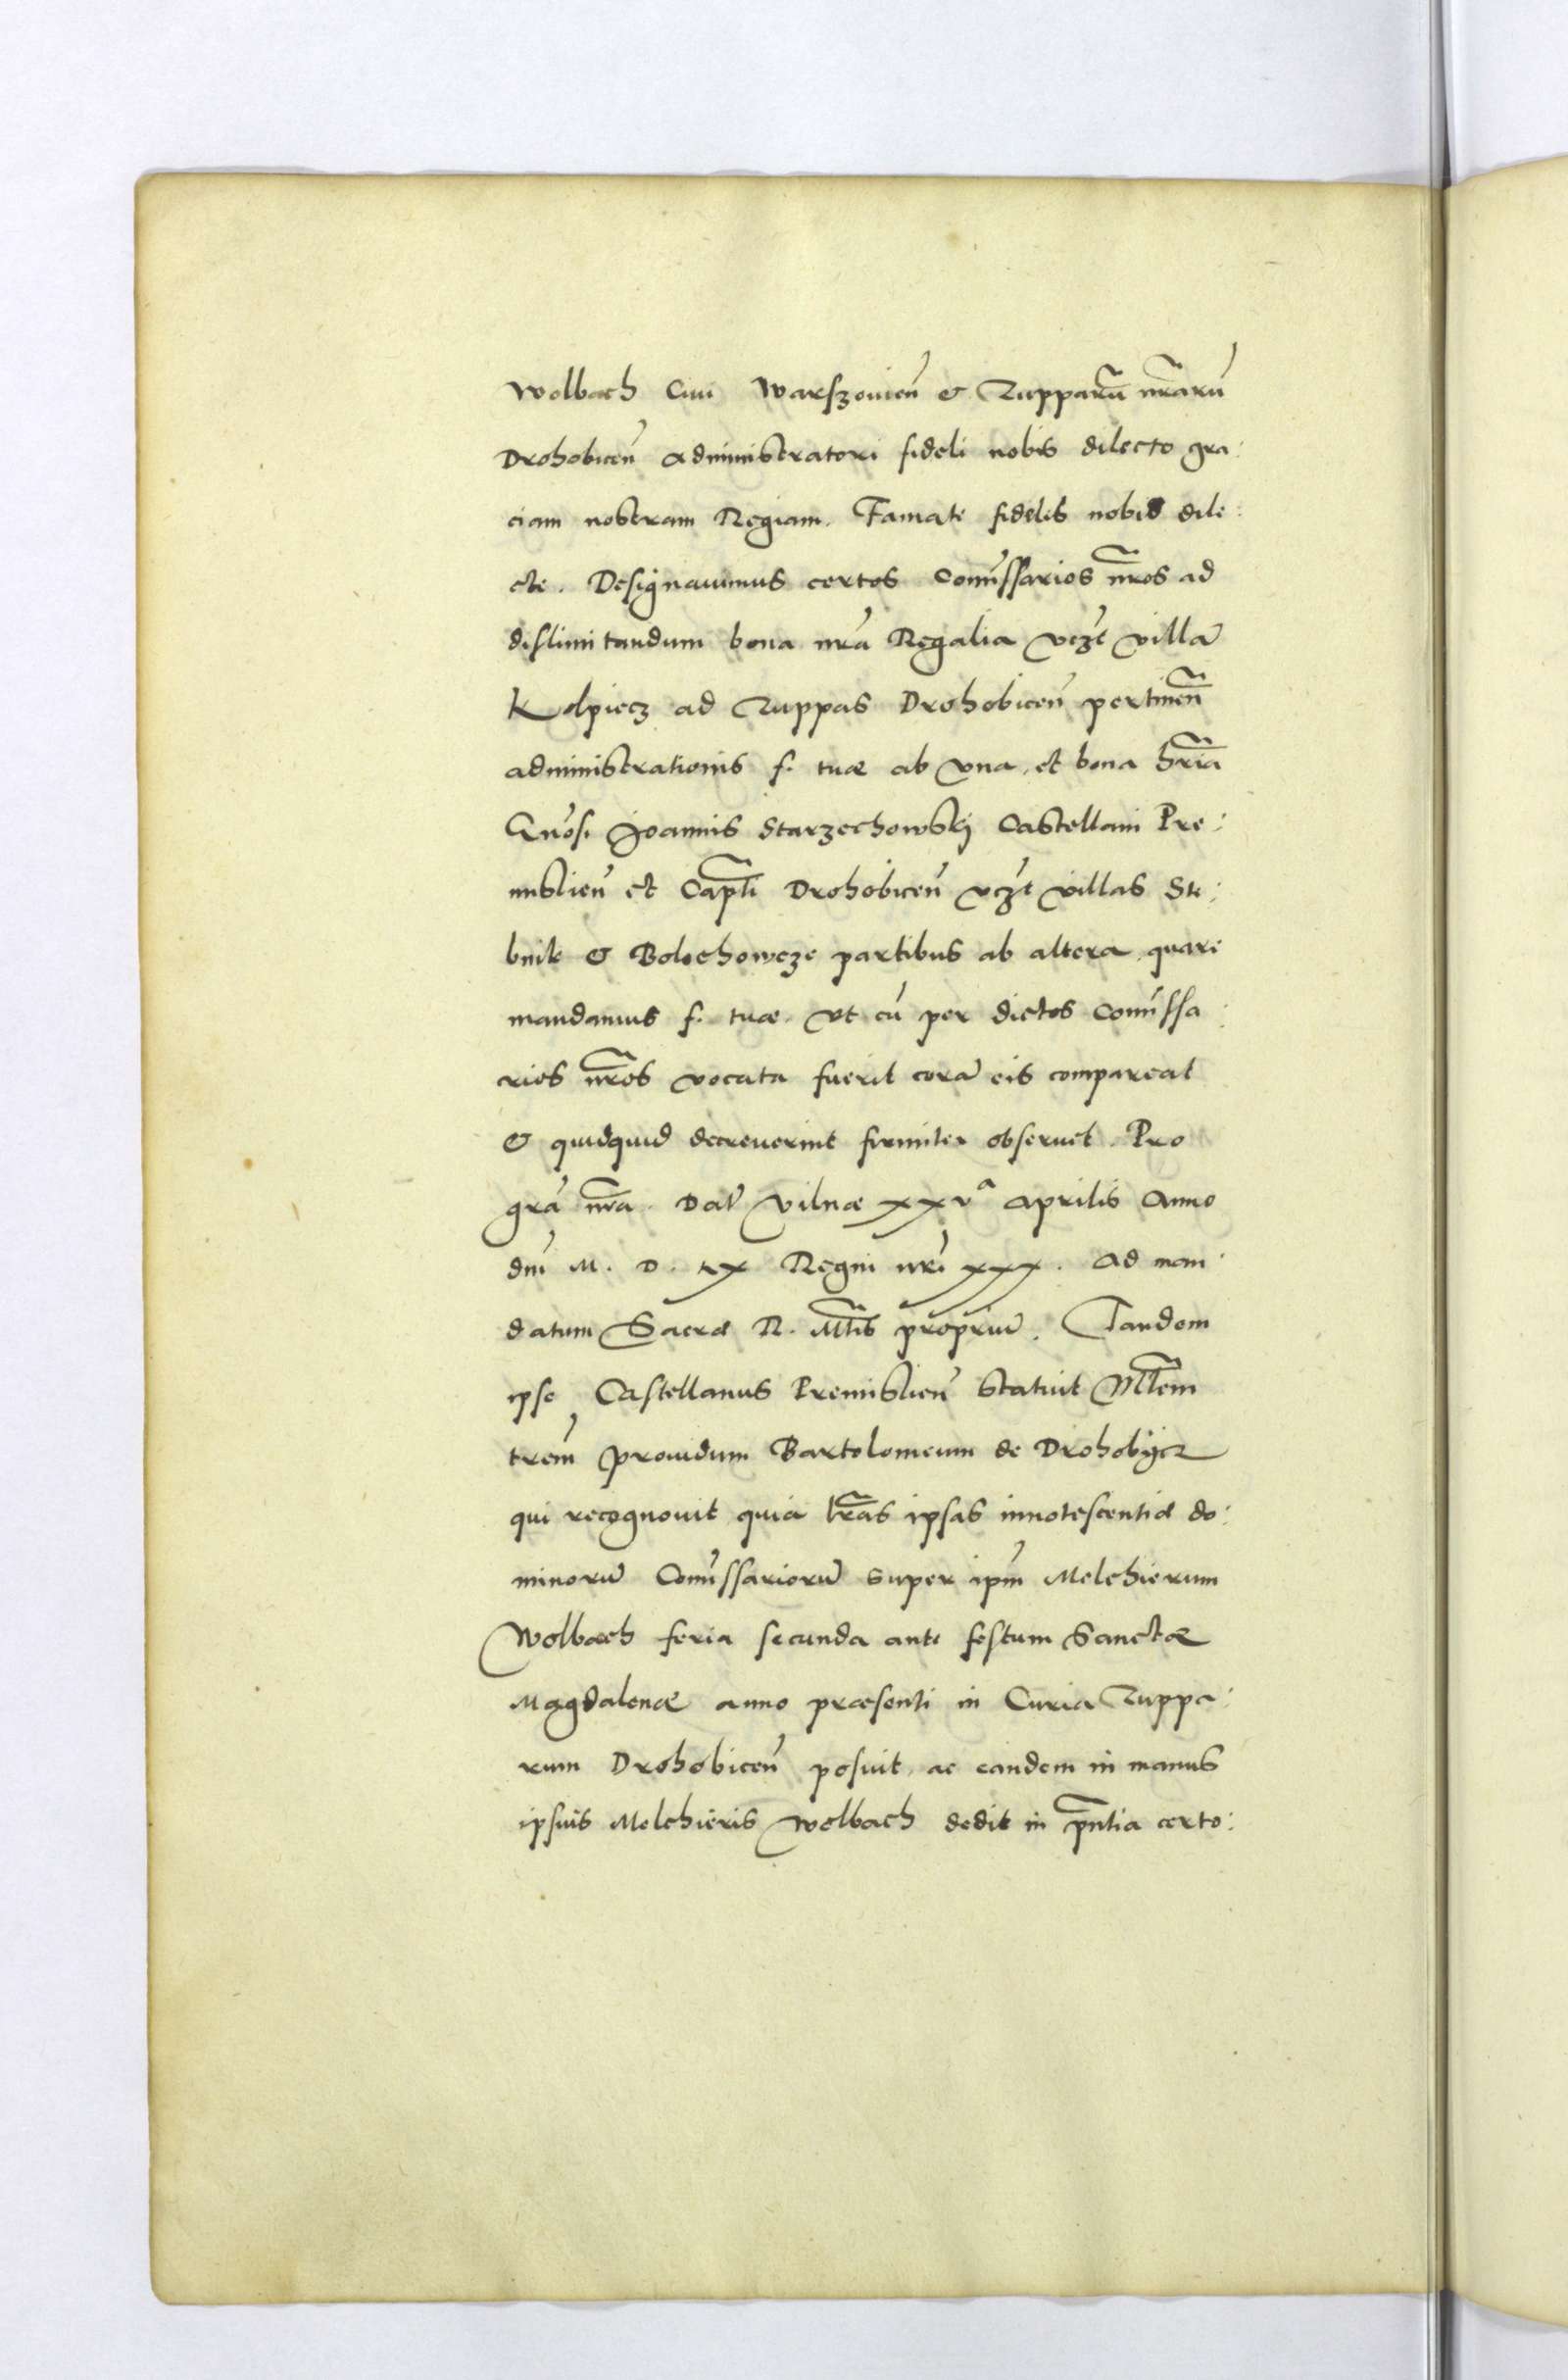 Wolbach Ciui Warszouien̄ & Zupparū nr̄arū
Drohobicen̄ administratori fideli nobis dilecto gra:
ciam nostram Regiam. Famate fidelis nobis dile:
cte. Designauimus certos Com̄issarios nr̄os ad
dislimitandum bona nr̄a Regalia vczt villā
Kolpiecz ad Zuppas Drohobicen̄ pertinen̄
administrationis f. tuæ ab vna, et bona hr̄ia
Gnōsi Joannis Starzechowskj Castellani Pre:
mislien̄ et Capt̄i Drohobicen̄ vczt villas Ste:
bnik & Bolechowcze partibus ab altera quare
mandamus f. tuæ. vt cū per dictos Com̄issa:
rios nr̄os vocata fuerit corā eis compareat
& quidquid decreuerint firmiter obseruet. Pro
grā nr̄a. Dat̄ Vilnæ xxvª aprilis Anno
dn̄i M. D. LX Regni nr̄i xxx. Ad man:
datum Sacræ R. Mt̄is propriū. Tandem
ipse Castellanus Premislien̄ statuit Ml̄tem
trem̄ prouidum Bartolomeum de Drohobÿcz
qui recognouit quia lr̄as ipsas innotescentiæ do:
minorū Com̄issariorū super ipm̄ Melchierum
Wolbach feria secunda ante festum Sanctæ
Magdalenæ anno præsenti in Curia Zuppa:
rum Drohobicen̄ posuit, ac eandem in manus
ipsius Melchieris Wolbach dedit in pn̄tia certo: